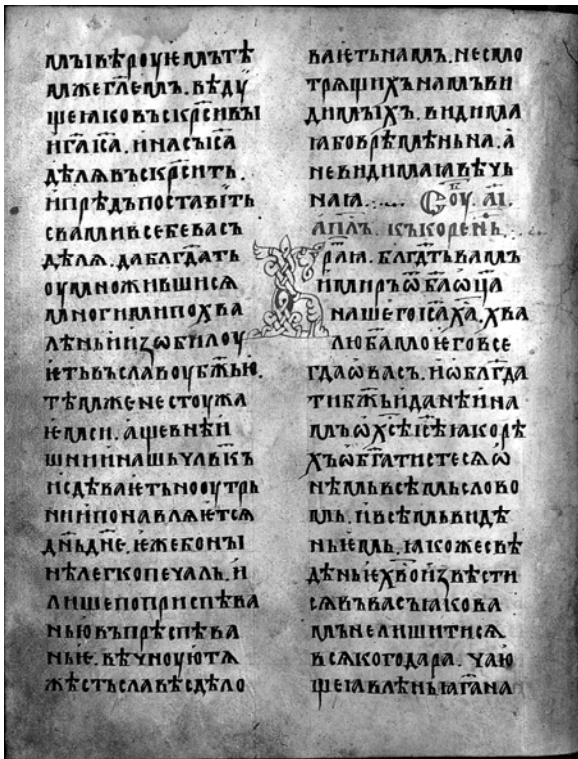 мꙑвѣроуѥмътѣ
мьжегл҃емъ. вѣдѹ
щеꙗковъскр҃сивꙑ
и҆г҃аі҆са. и҆насъі҆са
дѣлꙗвъскр҃сить.
и҆прѣдъпоставить
свамивсебевасъ
дѣлꙗ. даблг҃дать
оумножившисꙗ
многимипохва
лѣньи҆и҆зѡбилоу
ѥтьвъславоубж҃ью.
тѣмженестоужа
ѥмси. а҆щевнѣи
шнии҆нашьчл҃вкъ
и҆сдѣваѥтьнооутрь
нии҆понавлꙗѥтсꙗ
дн҃ьдн҃е. ѥжебонꙑ
нѣлегкопечаль. и҆
лишепоприспѣва
ньювъпрѣспѣва
ньѥ. вѣчноуютѧ
жєстьславꙑсдѣло
ваѥтьнамъ. несмо
трѧщихънамъви
димꙑхъ. видима
ꙗбоврѣмѣньна. а҆
невидимаꙗвѣчь
наꙗ. Соу. аі.
апл҃ъ. къкорень.
раꙗ. блг҃дтьвамъ
и҆миръѿб҃аѡц҃а
нашегоі҆с҃ах҃а. хва
люб҃амоѥговсе
гдаѡвасъ. и҆ѡблг҃да
тибж҃ьи҆данѣи҆на
мъѡх҃сѣі҆с҃ѣꙗкорѣ
хъѡбг҃атистесꙗѡ
нѣмьвсѣмьслово
мь. и҆всѣмьвидѣ
ньѥмь. ꙗкожесвѣ
дѣньѥхв҃ои҆звѣсти
сꙗвъвасъꙗкова
мънелишитисꙗ
всꙗкогодара. чаю
щеꙗвлѣньꙗг҃ана